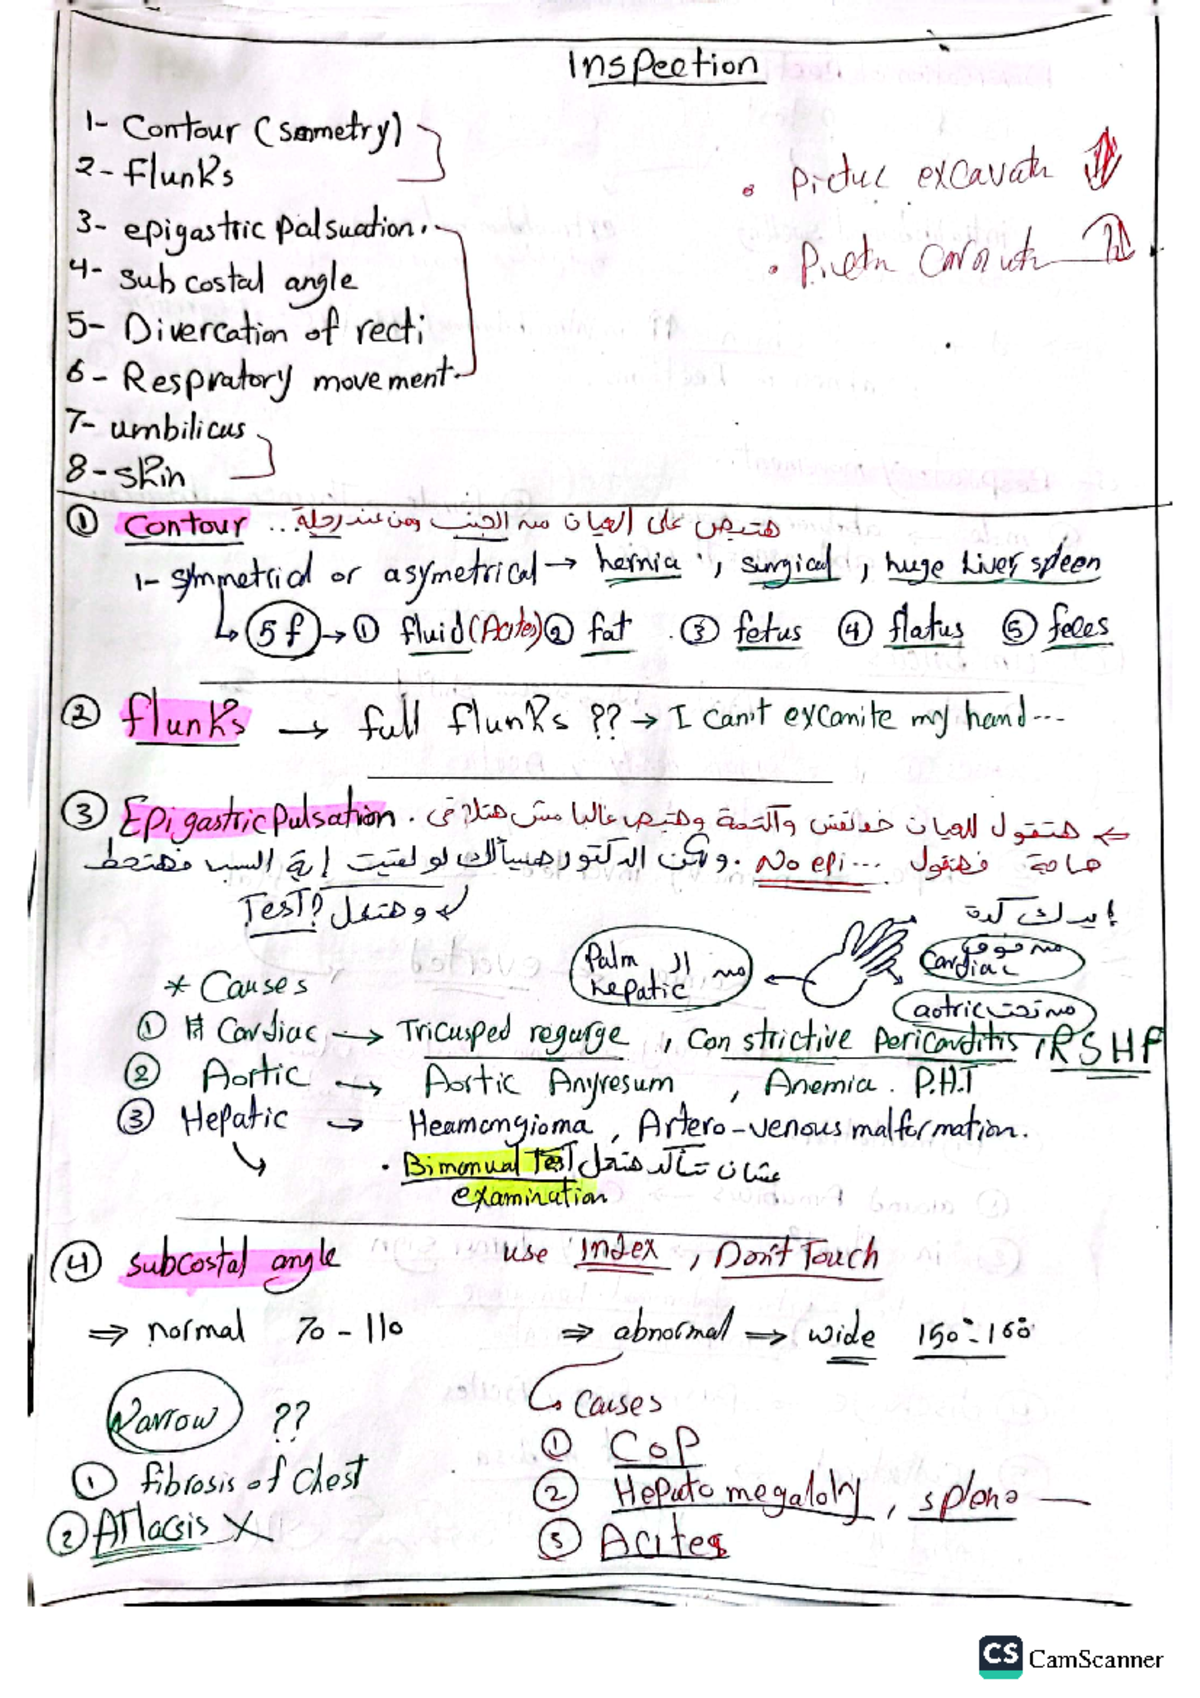 Inspection
1- Contour (Smmetry)
2- flunks
3- epigastric Palsuation.
4- sub costal angle
5- Divercation of recti
6- Respratory movement
7- umbilicus
8- skin
• Pictuc excavatu
① Contour .. هتبص على العيان من الجنب ومن عند رجلة...
1- symmetrial or asymetrical → hernia, surgical, huge Liver spleen
5f → ① fluid (Acites) ② fat ③ fetus ④ flatus ⑤ feces
② flunks → full flunks ?? → I can't excamite my hand...
③ Epigastric Pulsation. ← هتقول للعيان خد نفس واكتمة وهتبص غالبا مش هتلاقى
حاجة فهتقول No epi.... ولكن الدكتور هيسألك لو لقيت إية السبب فهتحط
إيدك كدة وهتعمل Test?
من فوق Cardiac
من ال Palm hepatic
من تحت aotric
* Causes
① Cardiac → Tricusped regurge, Constrictive Pericarditis, RSHF
② Aortic → Aortic Anyresum, Anemia. P.H.T
③ Hepatic → Heamongioma, Artero-venous malformation.
• Bimanual Test عشان تتأكد هتعمل
examination
④ subcostal angle use Index, Don't Touch
⇒ normal 70 - 110 ⇒ abnormal → wide 150° - 160°
Narrow ?? Causes
① fibrosis of Chest ① COP
② Atlacsis X ② Hepato megaloly, spleno —
③ Acites
CS CamScanner